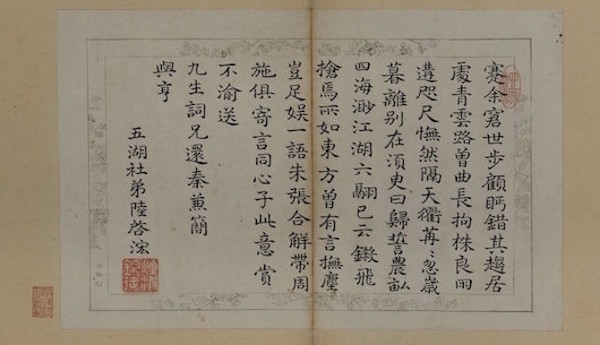 蹇余窘世步顧眄錯其趨居
處青雲路曾曲長拘株良雨
遘咫尺憮然隔天衢苒〻忽歲
暮離別在須臾曰歸誓農畝
四海渺江湖六翮已云鎩飛
搶焉所如東方曾有言撫塵
豈足娛一語朱張合解帶周
施俱寄言同心子此意賞
不渝送
九生詞兄還秦蒹簡
與亨
五湖社弟陸啓浤